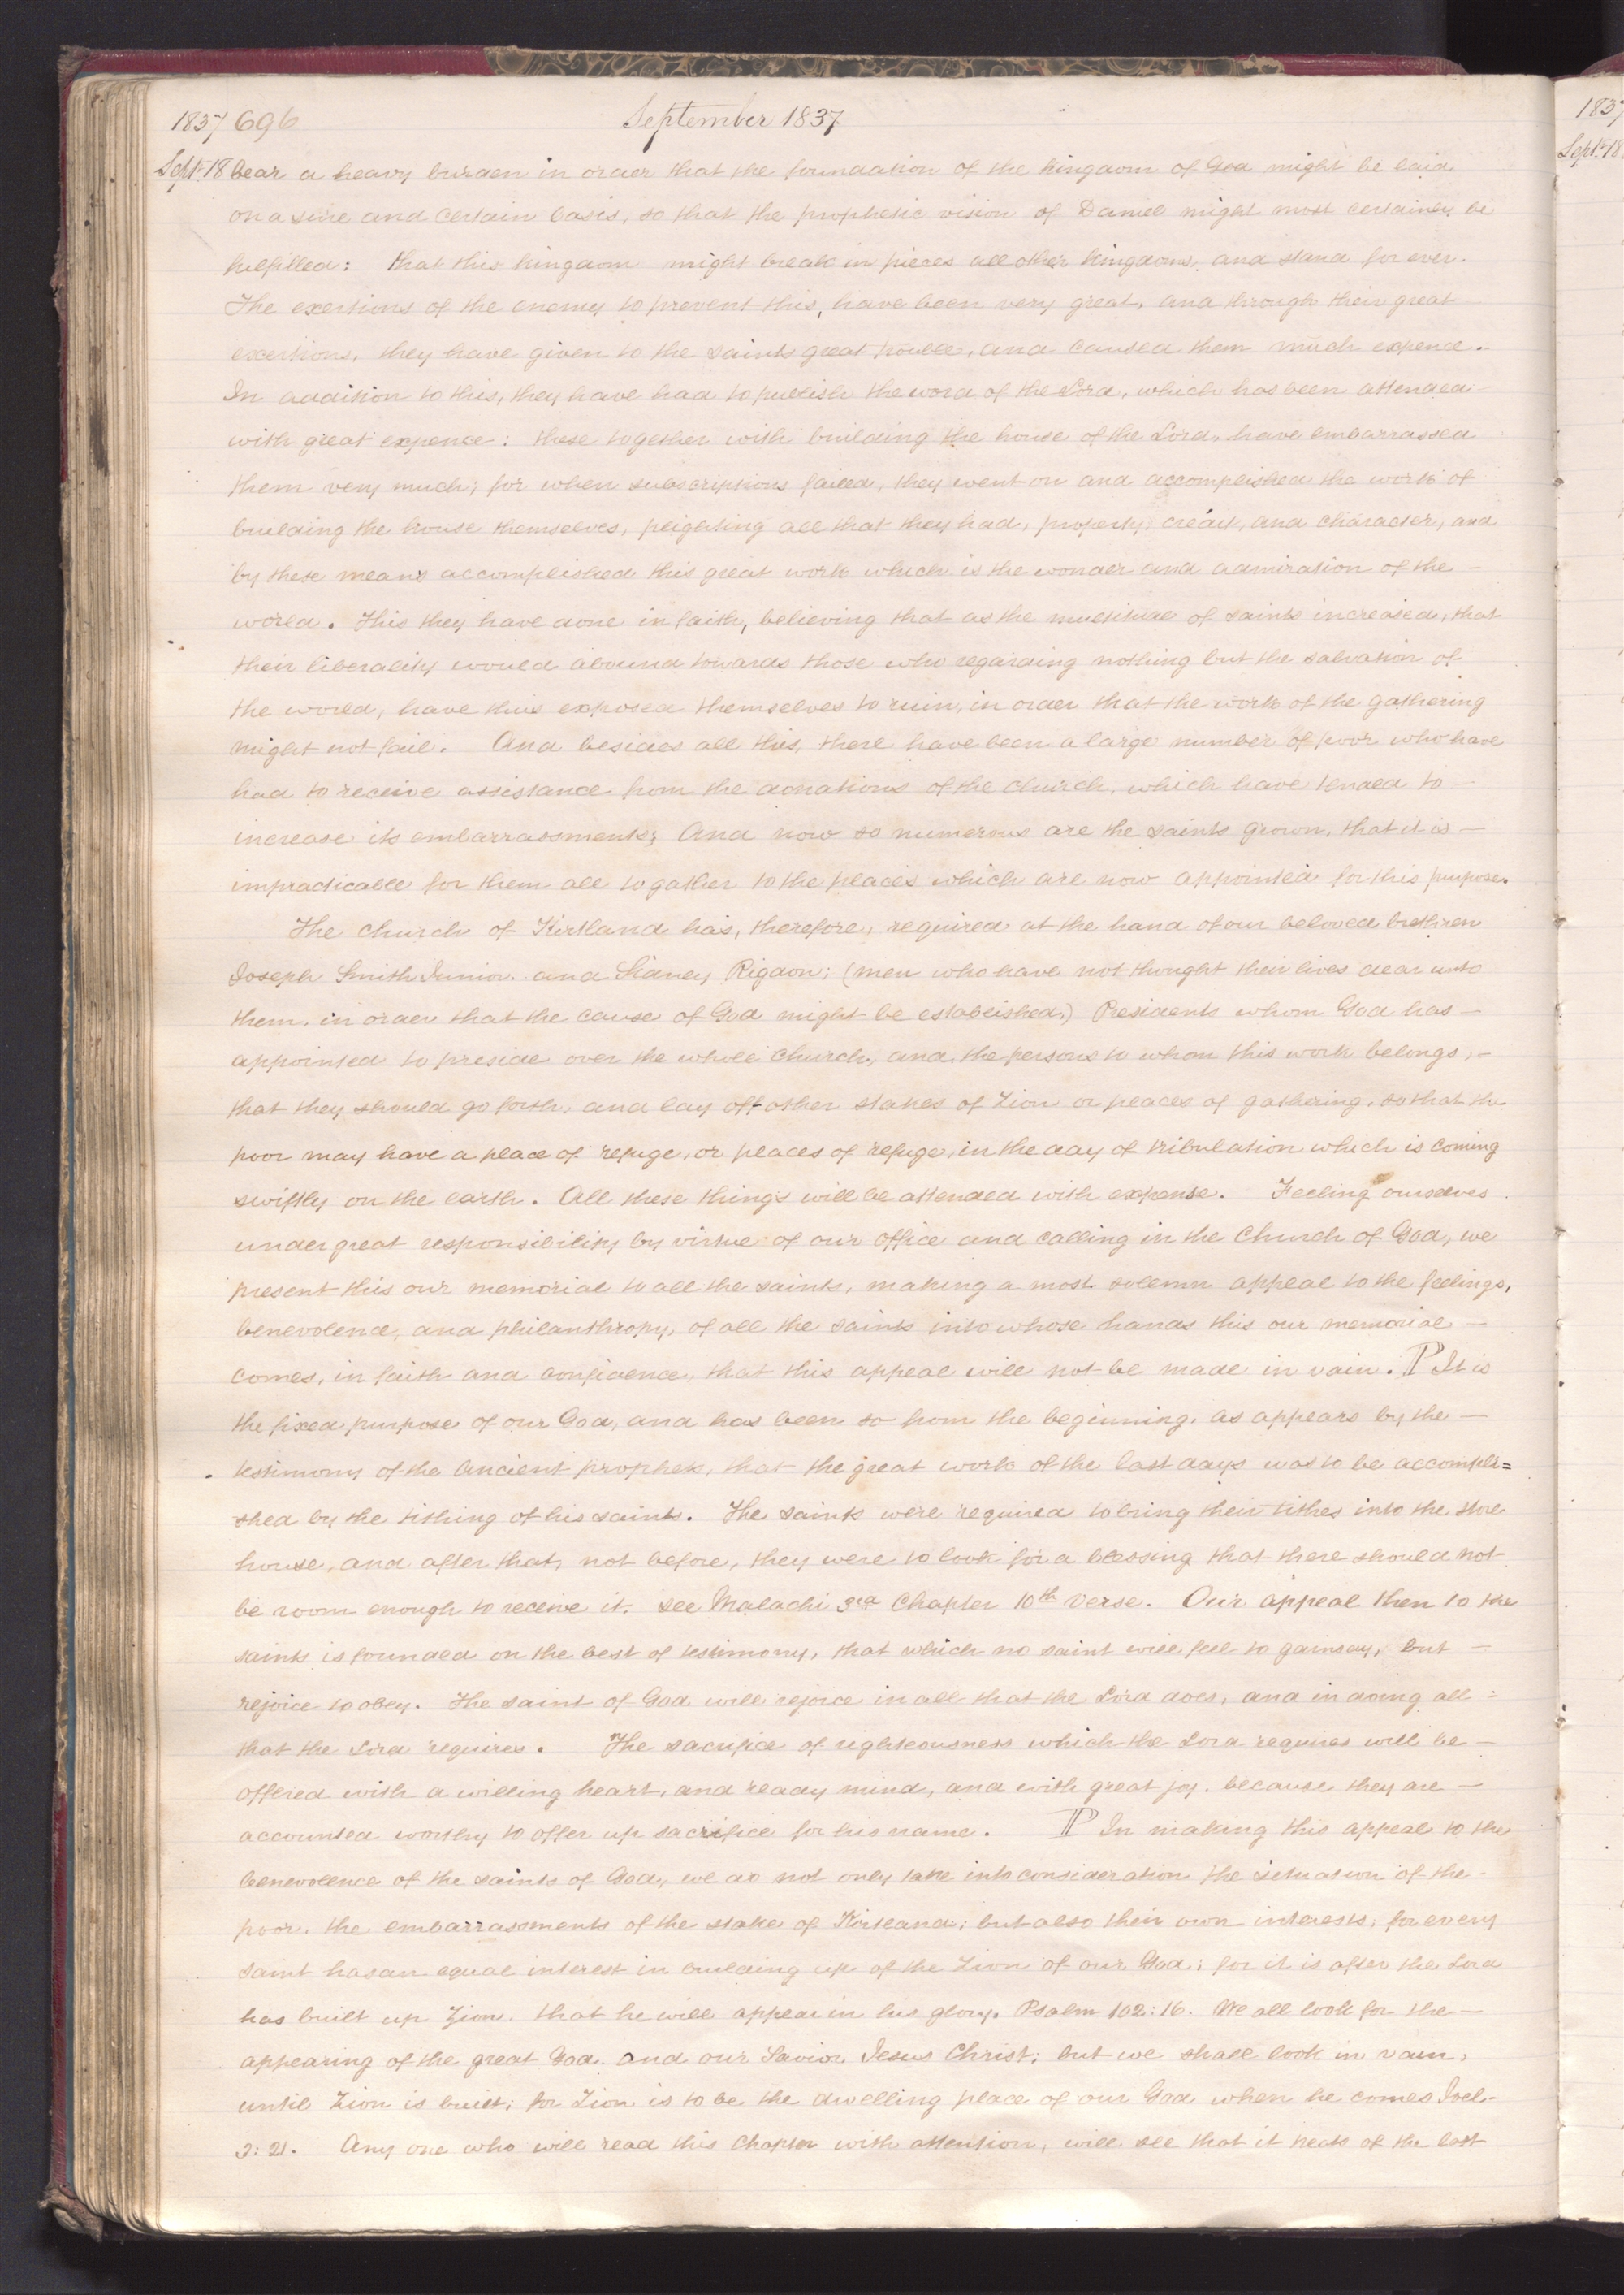 1837 696 September 1837
Sept. 18 bear a heavy burden in order that the foundation of the kingdom of God might be laid
on a sure and certain basis, so that the prophetic vision of Daniel might most certainly be
fulfilled: that this kingdom might break in pieces all other kingdoms, and stand for ever.
The exertions of the enemy to prevent this, have been very great, and through their great
exertions, they have given to the saints great trouble, and caused them much expence.
In addition to this, they have had to publish the word of the Lord, which has been attended
with great expence: these together with building the house of the Lord, have embarrassed
them very much; for when subscriptions failed, they went on and accomplished the work of
building the house themselves, plighting all that they had, property, credit, and character, and
by these means accomplished this great work which is the wonder and admiration of the
world. This they have done in faith, believing that as the multitude of saints increased, that
their liberality would abound towards those who regarding nothing but the salvation of
the world, have thus exposed themselves to ruin, in order that the work of the gathering
might not fail. And besides all this, there have been a large number of poor who have
had to receive assistance from the donations of the church, which have tended to
increase its embarrassments; And now so numerous are the saints grown, that it is
impracticable for them all to gather to the places which are now appointed for this purpose.
The church of Kirtland has, therefore, required at the hand of our beloved brethren
Joseph Smith Junior. and Sidney Rigdon; (men who have not thought their lives dear unto
them, in order that the cause of God might be established,) Presidents whom God has
appointed to preside over the whole church, and, the persons to whom this work belongs,
that they should go forth, and lay off other stakes of Zion or places of gathering, so that the
poor may have a place of refuge, or places of refuge, in the day of tribulation which is coming
swiftly on the earth. All these things will be attended with expense. Feeling ourselves
under great responsibility by virtue of our office and calling in the Church of God, we
present this our memorial to all the saints, making a most solemn appeal to the feelings,
benevolence, and philanthropy, of all the saints into whose hands this our memorial
comes, in faith and confidence, that this appeal will not be made in vain. P It is
the fixed purpose of our God, and has been so from the beginning, as appears by the
testimony of the ancient prophets, that the great work of the last days was to be accompli=
shed by the tithing of his saints. The saints were required to bring their tithes into the store
house, and after that, not before, they were to look for a blessing that there should not
be room enough to receive it. see Malachi 3rd Chapter 10th Verse. Our appeal then to the
saints is founded on the best of testimony, that which no saint will feel to gainsay, but
rejoice to obey. The saint of God will rejoice in all that the Lord does, and in doing all
that the Lord requires. The sacrifice of righteousness which the Lord requires will be
offered with a willing heart, and ready mind, and with great joy, because they are
accounted worthy to offer up sacrifice for his name. P In making this appeal to the
benevolence of the saints of God, we do not only take into consideration the situation of the
poor, the embarrassments of the stake of Kirtland; but also their own interests, for every
saint has an equal interest in building up of the Zion of our God; for it is after the Lord
has built up Zion, that he will appear in his glory. Psalm 102:16. We all look for the
appearing of the great God. and our Savior Jesus Christ; but we shall look in vain,
until Zion is built; for Zion is to be the dwelling place of our God when he comes Joel.
3: 21. Any one who will read this Chapter with attention, will see that it treats of the last
1837
Sept. 18